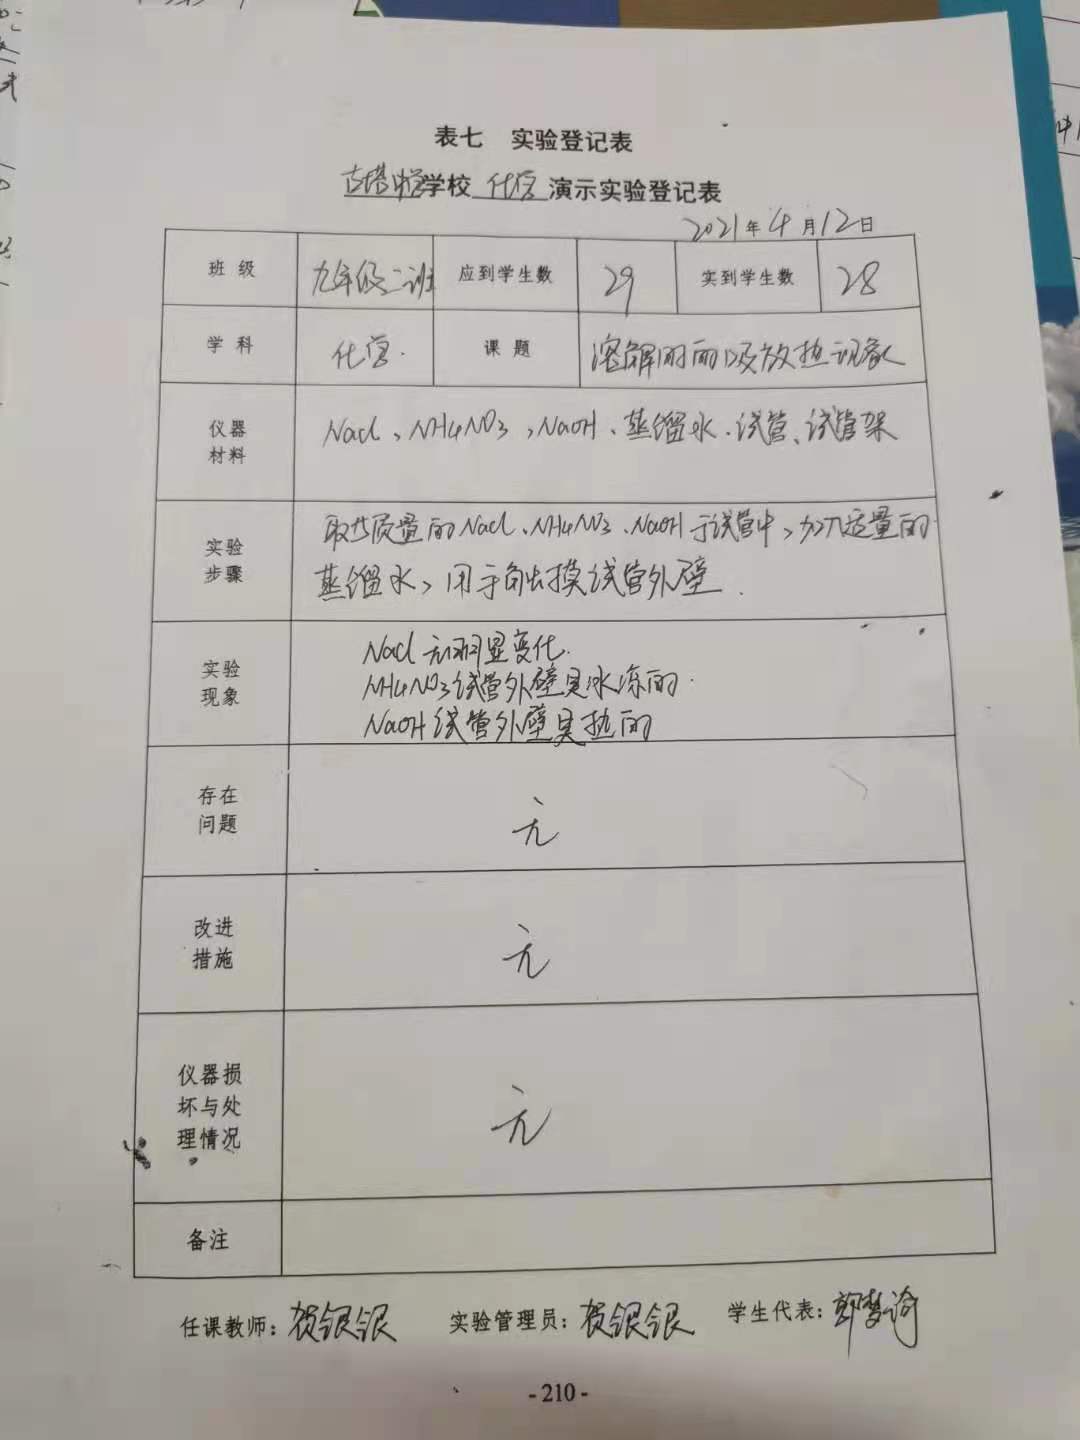 表七 实验登记表
古塔中学学校 化学 演示实验登记表
2021年4月12日
班 级 九年级二班 应到学生数 29 实到学生数 28
学 科 化学. 课 题 溶解时的吸放热现象
仪器
材料
Nacl、NH4NO3、NaOH、蒸馏水、试管、试管架
实验
步骤
取等质量的Nacl、NH4NO3、NaOH于试管中,加入适量的
蒸馏水,用手触摸试管外壁.
实验
现象
Nacl 无明显变化.
NH4NO3试管外壁是冰凉的.
NaOH 试管外壁是热的
存在
问题
无
改进
措施
无
仪器损
坏与处
理情况
无
备注
任课教师:贺银银 实验管理员:贺银银 学生代表:郭梦渝
- 210 -